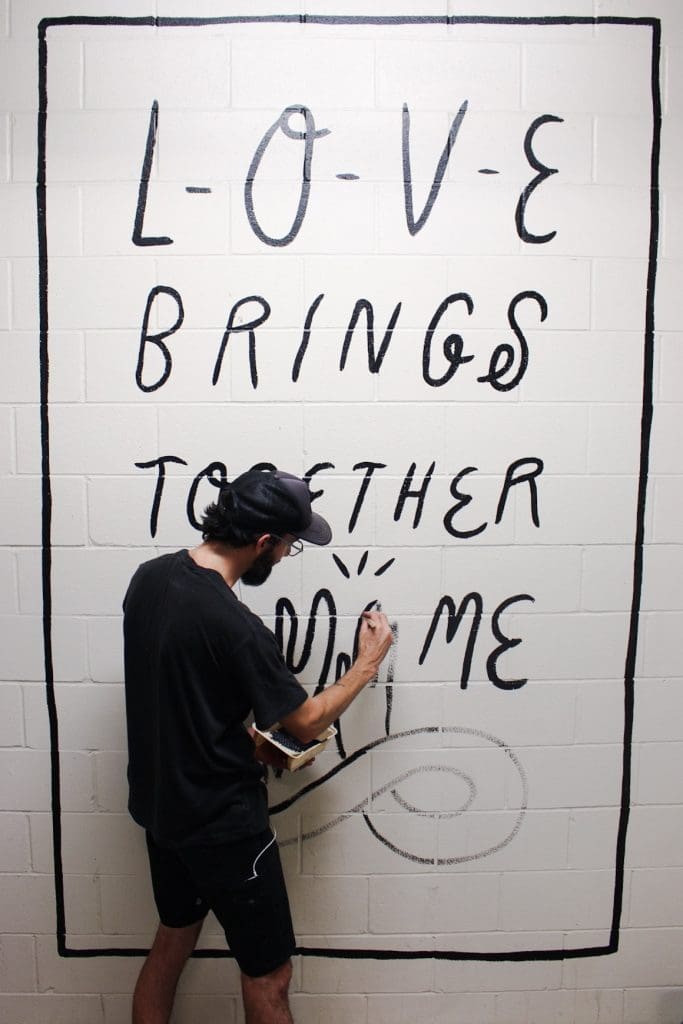 L-O-V-E
BRINGS
TOGETHER
ME